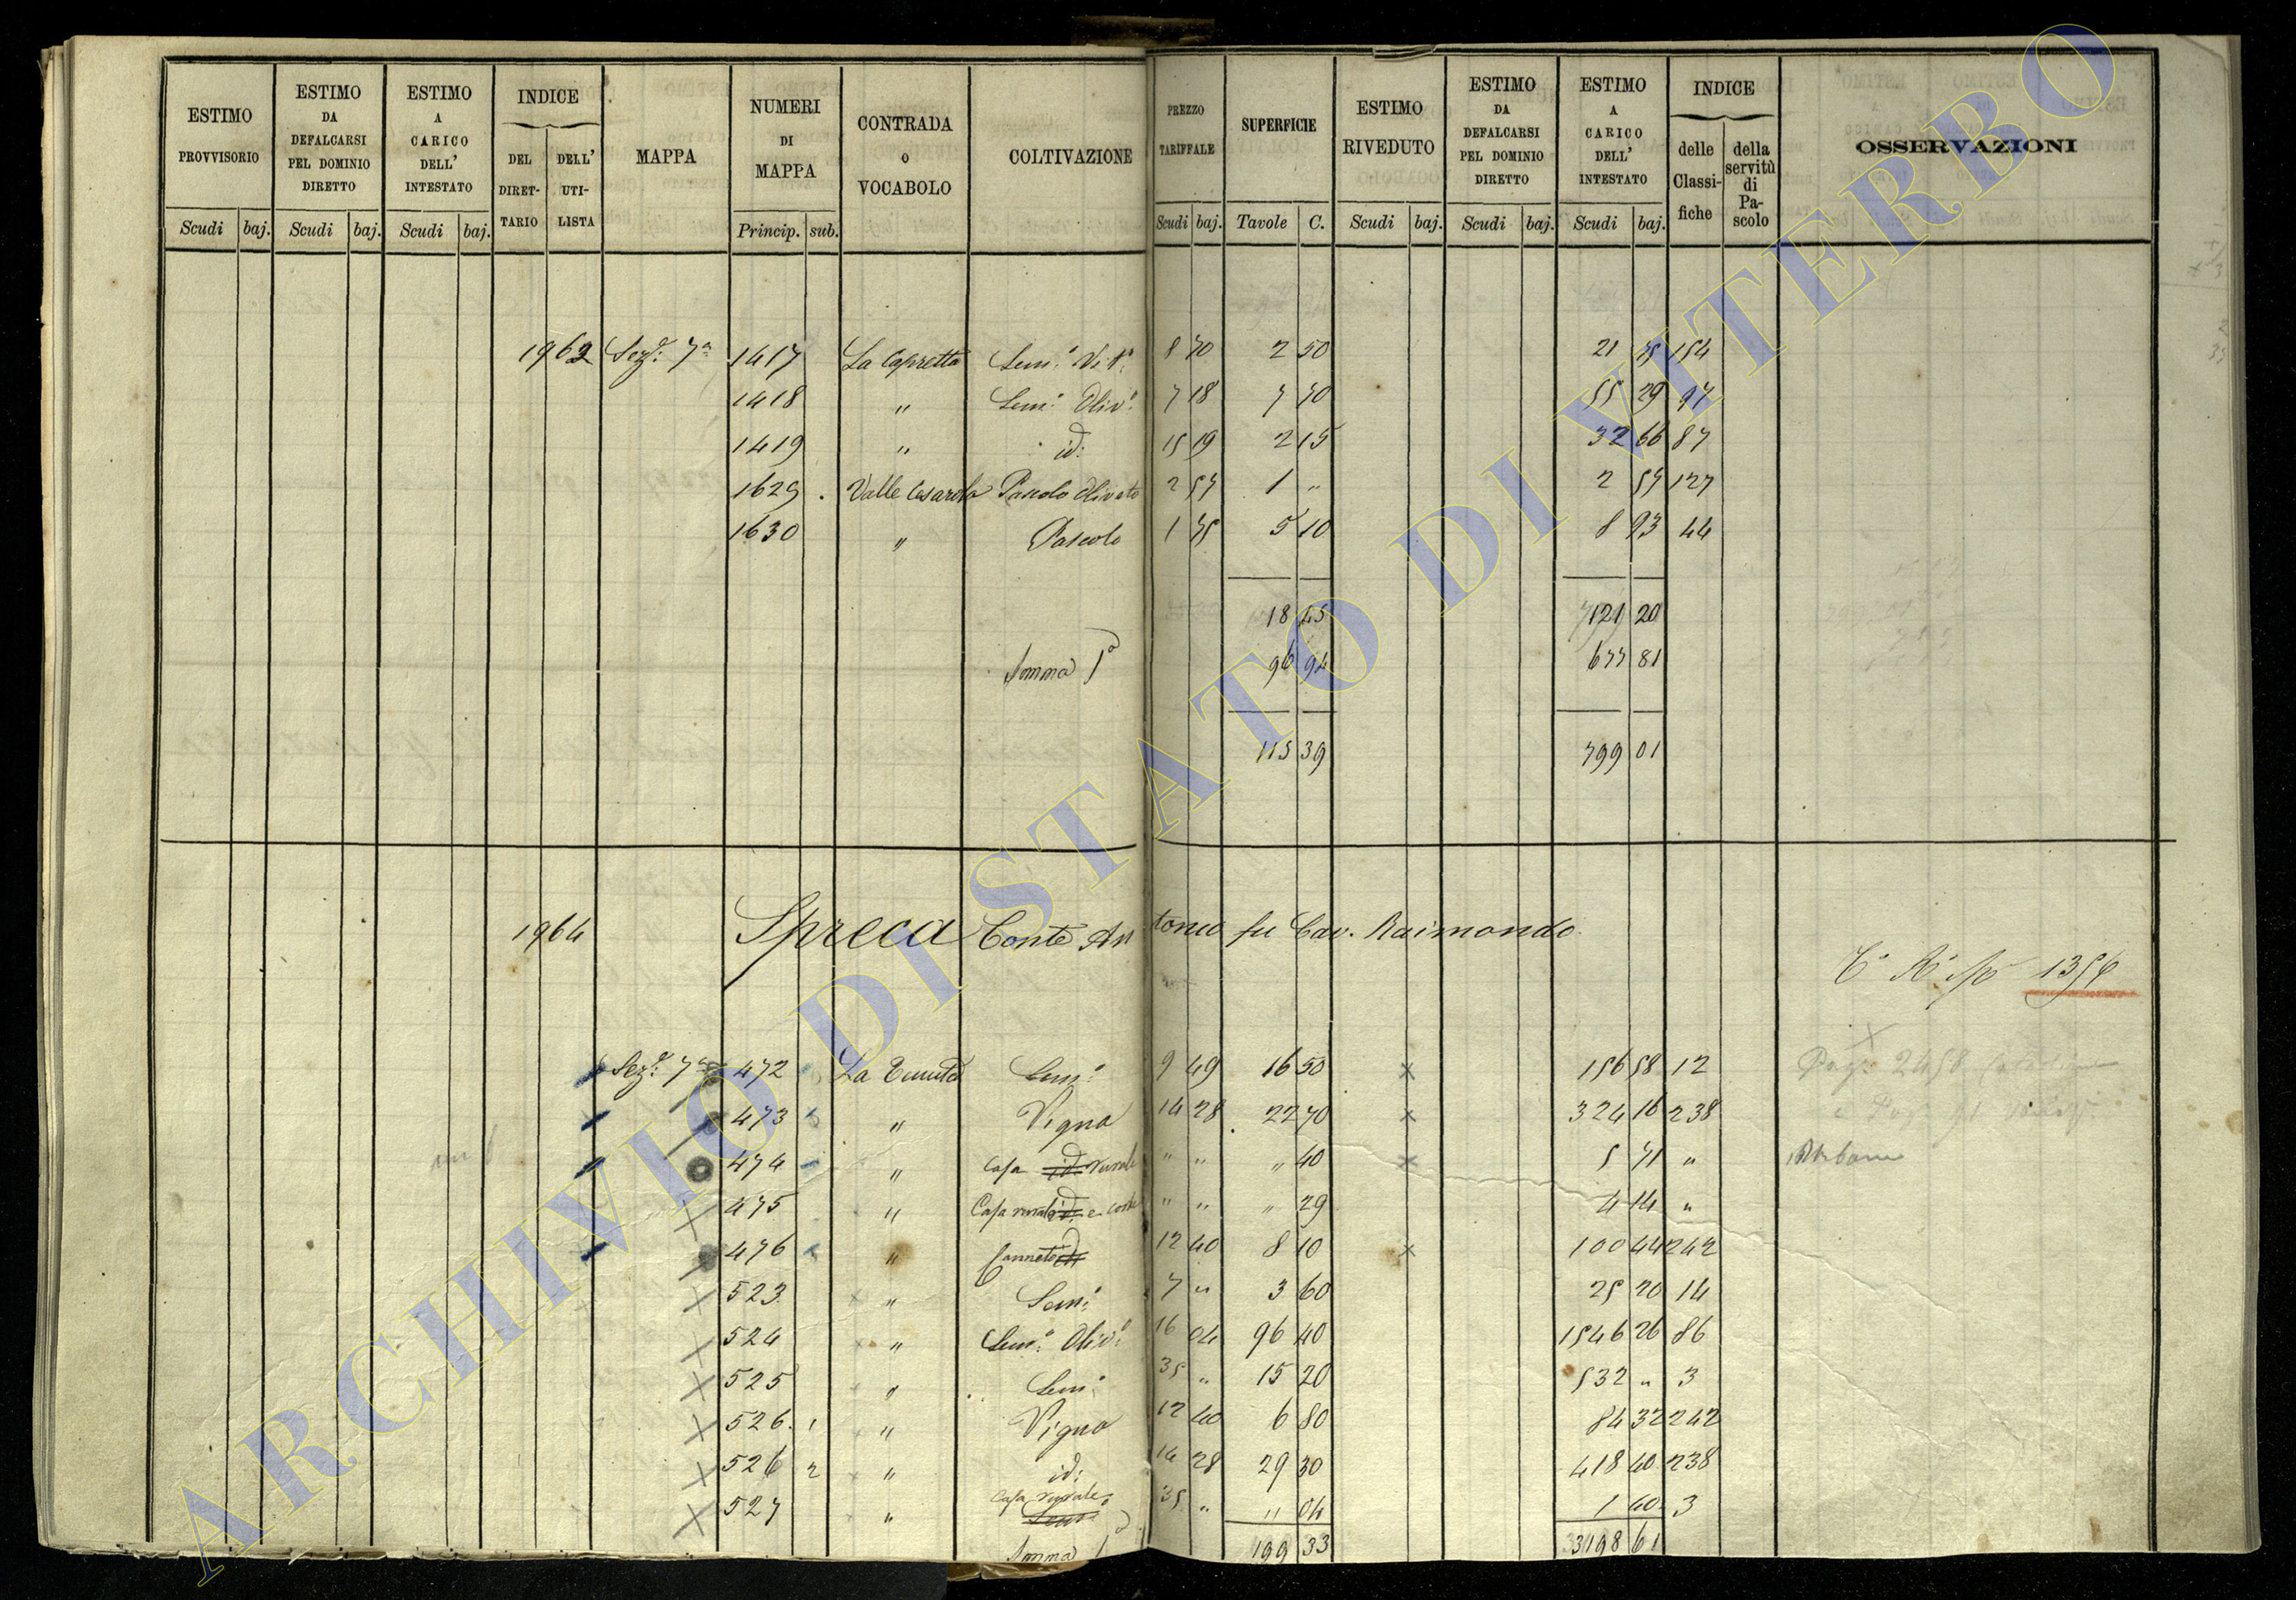 ESTIMO PROVVISORIO Scudi baj.
ESTIMO DA DEFALCARSI PEL DOMINIO DIRETTO Scudi baj.
ESTIMO A CARICO DELL' INTESTATO Scudi baj.
INDICE DEL DIRET- TARIO DELL' UTI- LISTA
MAPPA
NUMERI DI MAPPA Princip. sub.
CONTRADA O VOCABOLO
COLTIVAZIONE
PREZZO TARIFFALE Scudi baj.
SUPERFICIE Tavole C.
ESTIMO RIVEDUTO Scudi baj.
ESTIMO DA DEFALCARSI PEL DOMINIO DIRETTO Scudi baj.
ESTIMO A CARICO DELL' INTESTATO Scudi baj.
INDICE delle Classi- fiche della servitù di Pa- scolo
OSSERVAZIONI
1962 Sezᵉ: 7ª 1417 La Capretta Semᵒ: Vitᵒ: 8 70 2 50 21 75 154
1418 " Semᵒ: Olivᵒ: 7 18 7 70 55 29 97
1419 " id: 15 19 2 15 32 66 87
1629 Valle Cesarola Pascolo Olivato 2 57 1 " 2 57 127
1630 " Pascolo 1 75 5 10 8 93 44
18 45 121 20
Somma 1ª 96 94 677 81
115 39 799 01
1964 Spreca Conte Antonio fu Cav. Raimondo
1356
Sezᵉ: 7ª 472 La Tenuta Semᵒ: 9 49 16 50 x 156 58 12
473 " Vigna 14 28 22 70 x 324 16 238
474 " Casa id: rurale " " " 40 x 5 71 "
475 " Casa rurale id: e corte " " " 29 4 14 "
476 " Canneto id: 12 40 8 10 x 100 44 242
523 " Semᵒ: 7 " 3 60 25 20 14
524 " Semᵒ: Olivᵒ: 16 04 96 40 1546 26 86
525 " Semᵒ: 35 " 15 20 532 " 3
526 1 " Vigna 12 40 6 80 84 32 242
526 2 " id: 14 28 29 30 418 40 238
527 " Casa rurale Semᵒ: 35 " " 04 1 40 3
Somma 1ª 199 33 3198 61
Pag: 2458
Urbano
ARCHIVIO DI STATO DI VITERBO